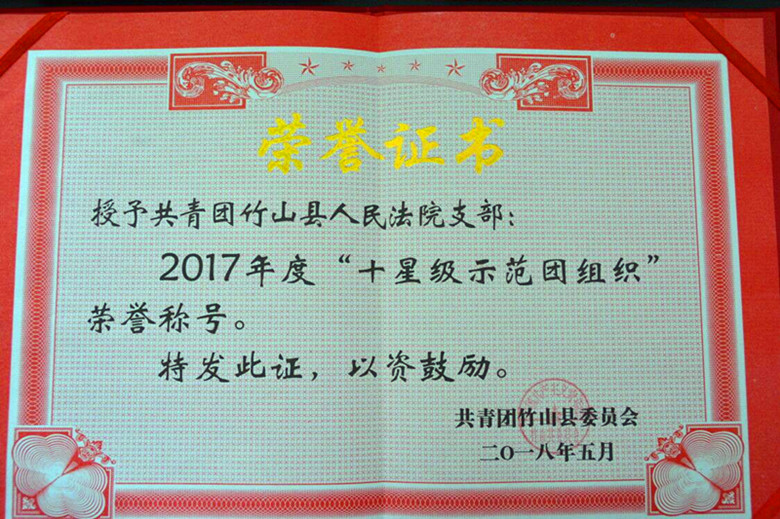 荣誉证书
授予共青团竹山县人民法院支部：
2017年度“十星级示范团组织”
荣誉称号。
特发此证，以资鼓励。
共青团竹山县委员会
二〇一八年五月